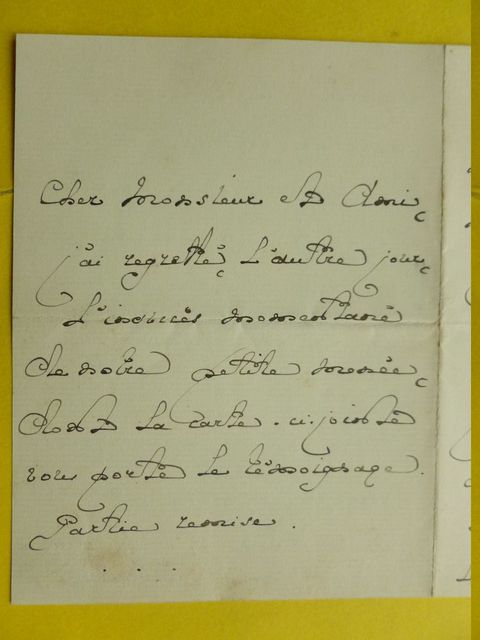 Cher Monsieur et Ami,
j'ai regretté, l'autre jour,
l'insuccès momentané
de notre petite
dont la carte ci-jointe
vous porte le témoignage.
Partie remise.
. . .